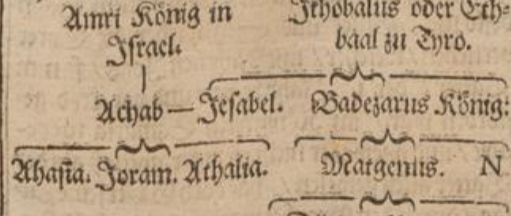 Amri König in
Israel.
Ithobalus oder Eth-
baal zu Tyro.
Achab — Jesabel. Badezarus König:
Ahasia. Joram. Athalia. Matgenus. N